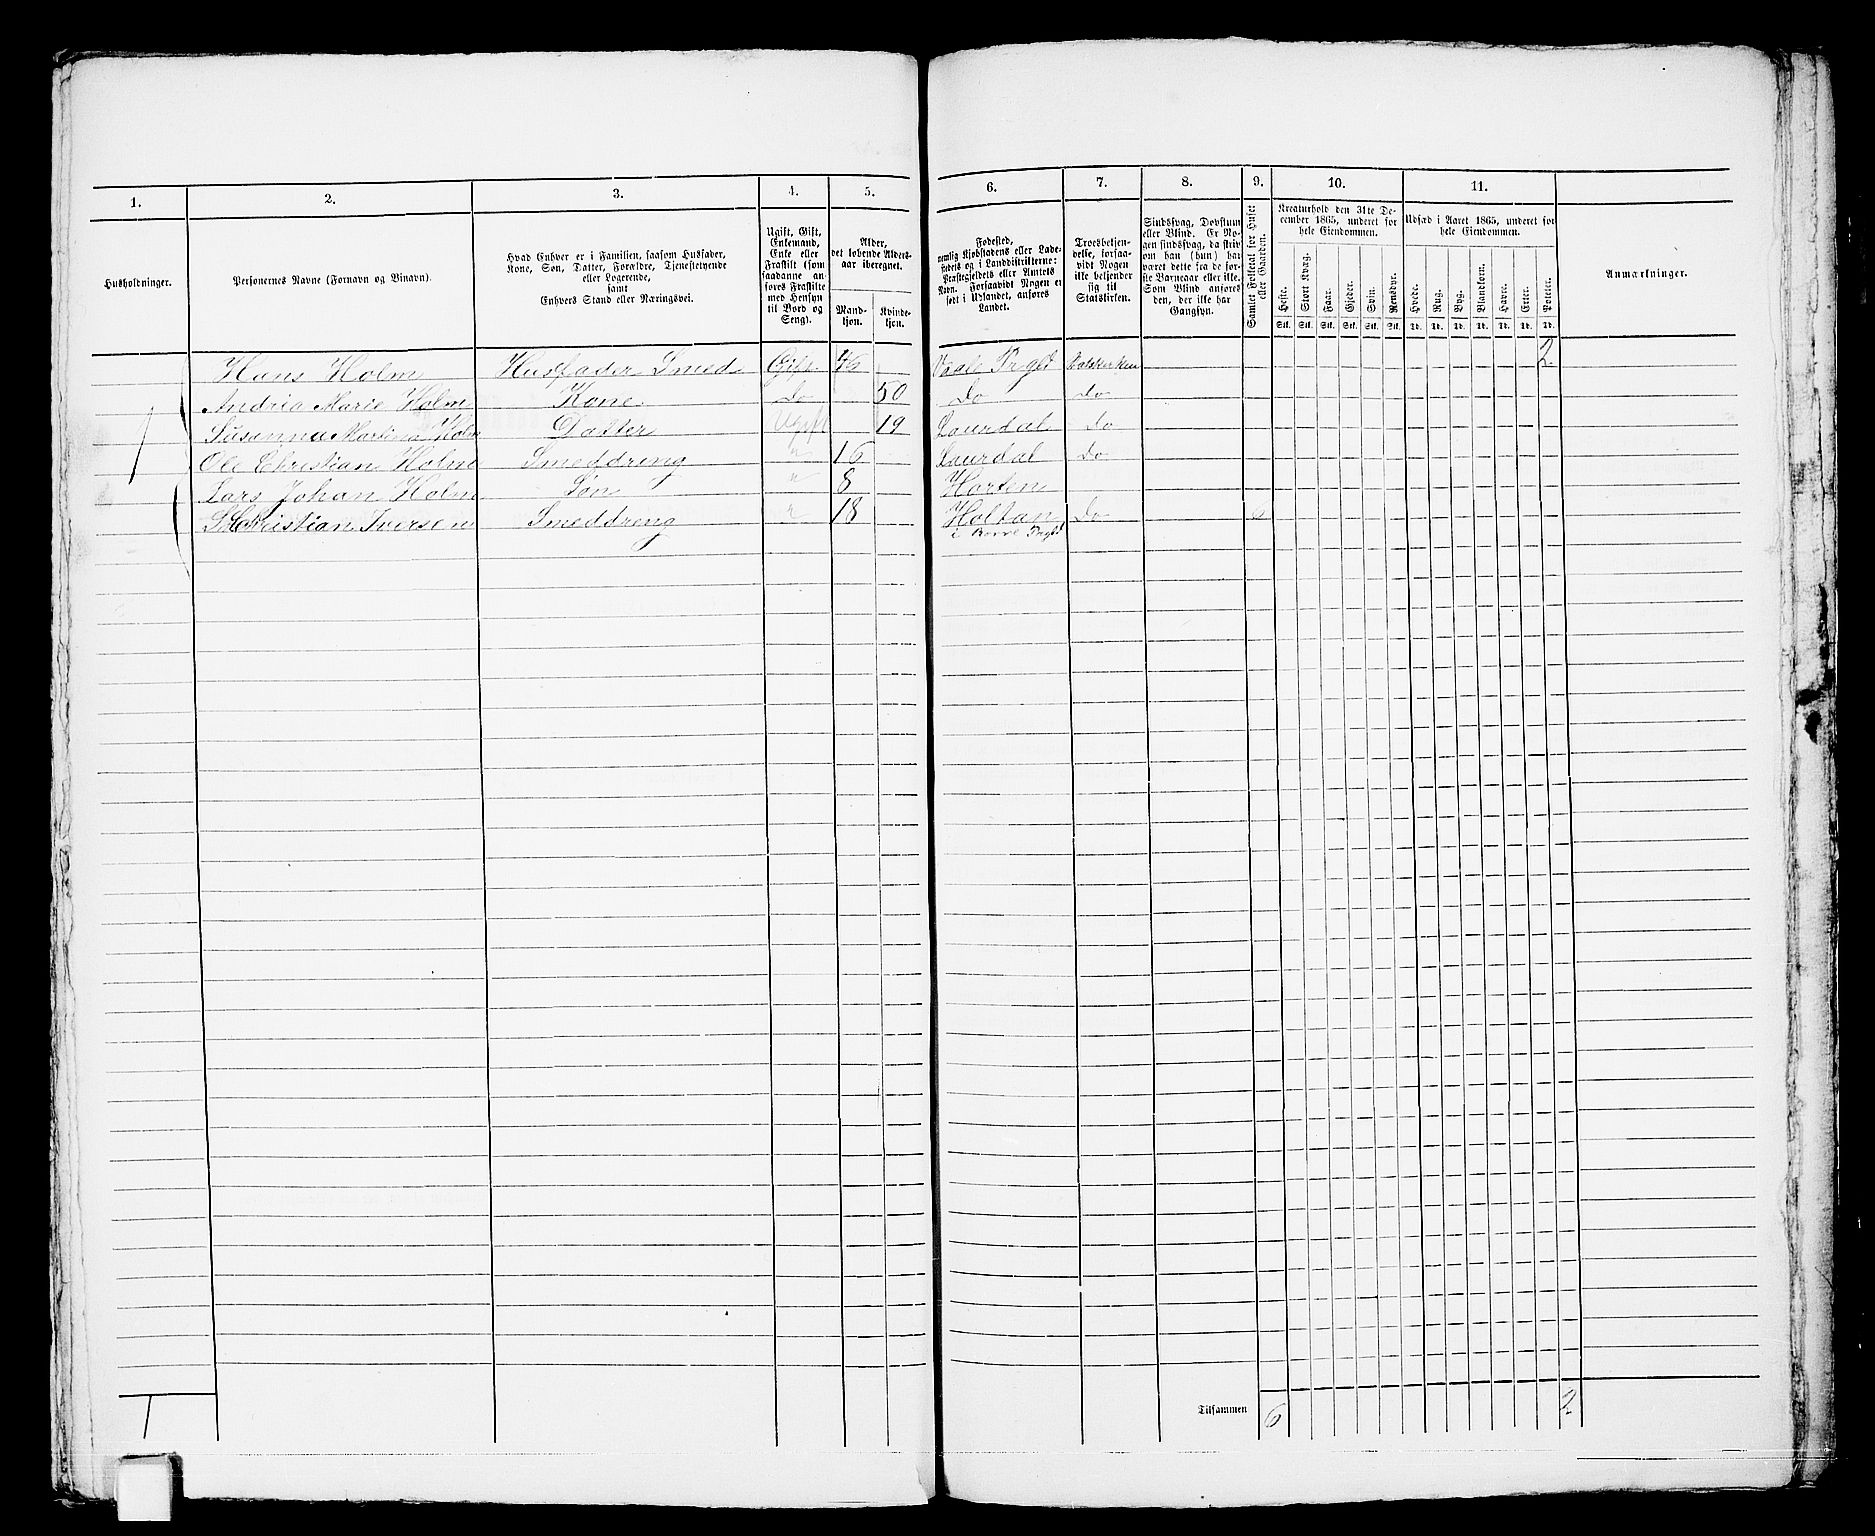 1. 2. 3. 4. 5. 6. 7. 8. 9. 10. 11.
Husholdninger.
Personernes Navne (Fornavn og Binavn).
Hvad Enhver er i Familien, saasom Husfader,
Kone, Søn, Datter, Forældre, Tjenestetyende
eller Logerende,
samt
Enhvers Stand eller Næringsvei.
Ugift, Gift,
Enkemand,
Enke eller
Fraskilt (som
saadanne an-
føres Fraskilte
med Hensyn
til Bord og
Seng).
Alder,
det løbende Alders-
aar iberegnet.
Mand-
kjøn.
Kvinde-
kjøn.
Fødested,
nemlig Kjøbstadens eller Lade-
stedets og i Landdistrikterne:
Præstegjeldets eller Amtets
Navn. Forsaavidt Nogen er
født i Udlandet, anføres
Landet.
Troesbekjen-
delse, forsaa-
vidt Nogen
ikke bekjender
sig til
Statskirken.
Sindssvag, Døvstum
eller Blind. Er No-
gen sindssvag, da skriv
om han (hun) har
været dette fra de før-
ste Barneaar eller ikke.
Som Blind anføres
den, der ikke har
Gangsyn.
Samlet Folketal for Huset
eller Gaarden.
Kreaturhold den 31te De-
cember 1865, underet for
hele Eiendommen.
Heste. Stort Kvæg. Faar. Gjeder. Svin. Rensdyr.
Stk. Stk. Stk. Stk. Stk. Stk.
Udsæd i Aaret 1865, underet for
hele Eiendommen.
Hvede. Rug. Byg. Blandkorn. Havre. Erter. Poteter.
Td. Td. Td. Td. Td. Td. Td.
Anmærkninger.
1
Hans Holm Husfader Smed Gift 46 Vaale Prgld Statskirken 2
Andria Marie Holm Kone Do 50 Do Do
Susanna Martina Holm Datter Ugift 19 Laurdal Do
Ole Christian Holm Smeddreng " 16 Laurdal Do
Lars Johan Holm Søn " 8 Horten
Christian Iversen Smeddreng " 18 Holtan Do 6
i Borre Prgld
1 Tilsammen 6 2